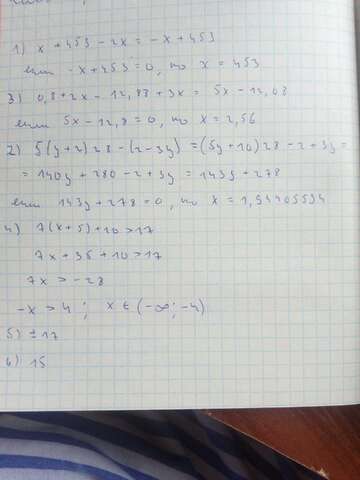 1) x + 453 - 2x = -x + 453
если -x + 453 = 0, то x = 453
3) 0,8 + 2x - 12,88 + 3x = 5x - 12,08
если 5x - 12,8 = 0, то x = 2,56
2) 5(y + 2) 28 - (2 - 3y) = (5y + 10) 28 - 2 + 3y =
= 140y + 280 - 2 + 3y = 143y + 278
если 143y + 278 = 0, то x = 1,94405594
4) 7(x + 5) + 10 > 17
7x + 35 + 10 > 17
7x > -28
-x > 4 ; x ∈ (-∞; -4)
5) ± 17
6) 15